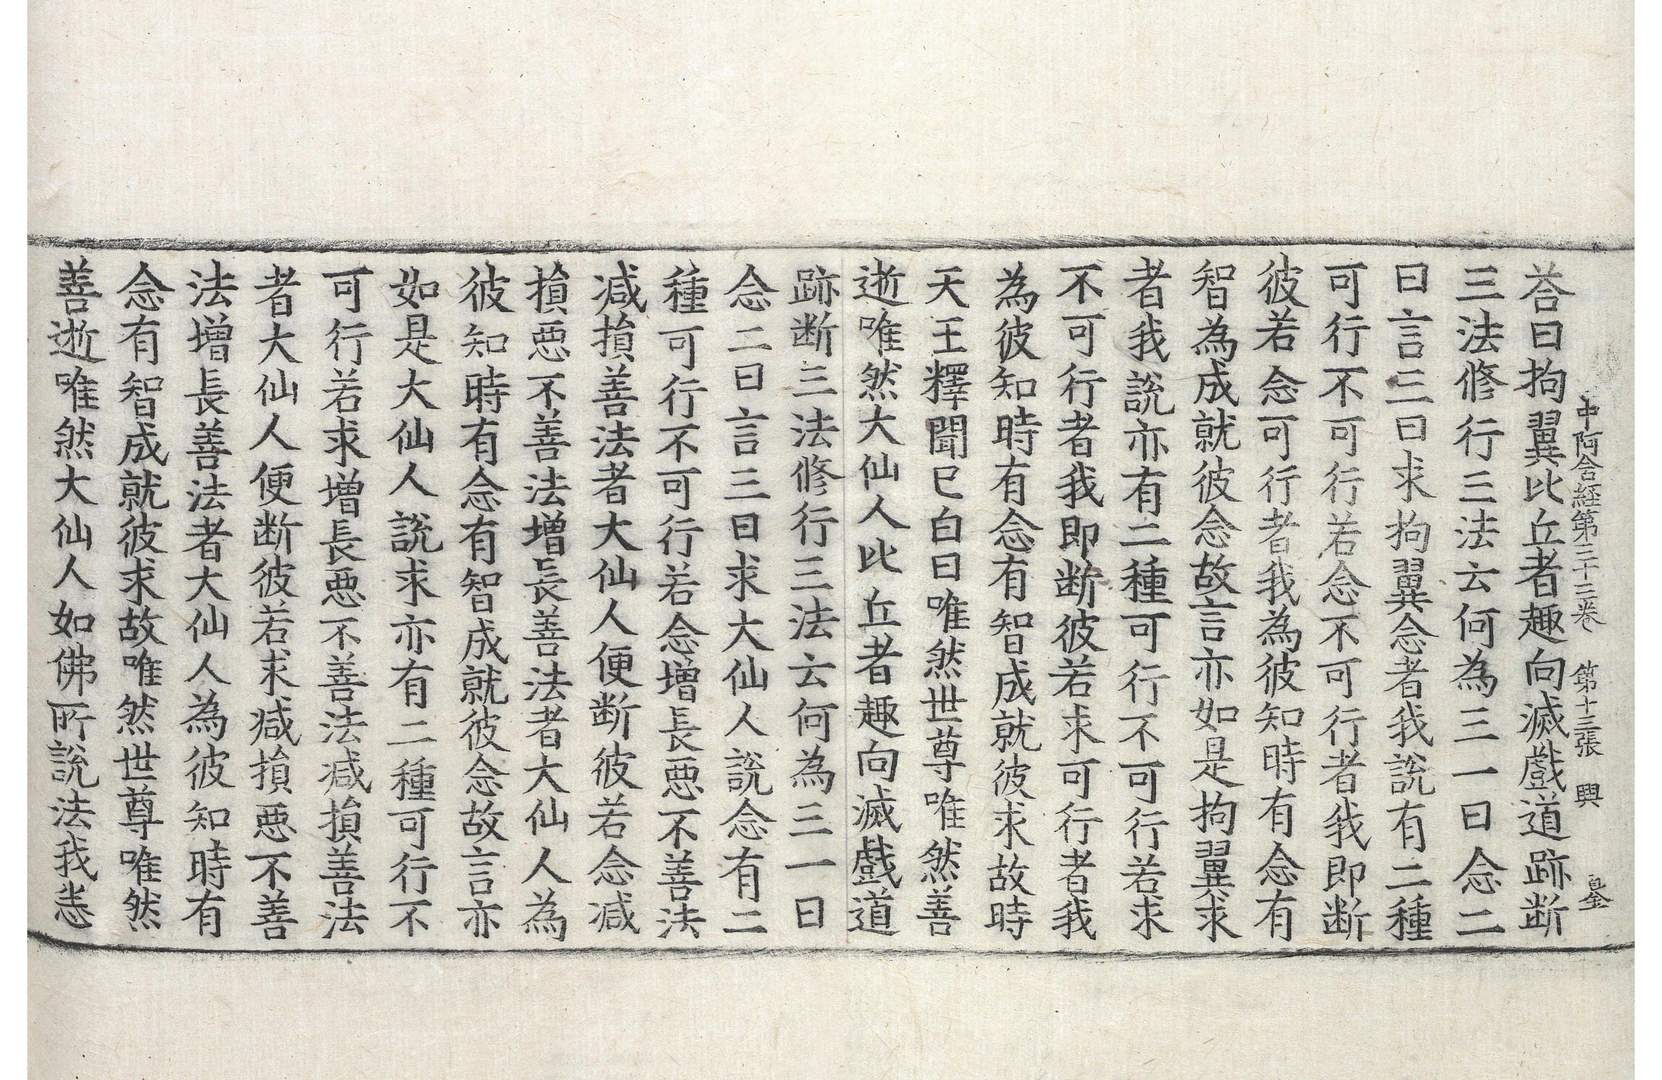 中阿含經第三十三卷 第十三張 興
荅曰拘翼比丘者趣向滅戲道跡断
三法修行三法云何為三一曰念二
曰言三曰求拘翼念者我說有二種
可行不可行若念不可行者我即断
彼若念可行者我為彼知時有念有
智為成就彼念故言亦如是拘翼求
者我說亦有二種可行不可行若求
不可行者我即断彼若求可行者我
為彼知時有念有智成就彼求故時
天王釋聞已白曰唯然世尊唯然善
逝唯然大仙人比丘者趣向滅戲道
跡断三法修行三法云何為三一曰
念二曰言三曰求大仙人說念有二
種可行不可行若念增長惡不善法
减損善法者大仙人便断彼若念减
損惡不善法增長善法者大仙人為
彼知時有念有智成就彼念故言亦
如是大仙人說求亦有二種可行不
可行若求增長惡不善法减損善法
者大仙人便断彼若求减損惡不善
法增長善法者大仙人為彼知時有
念有智成就彼求故唯然世尊唯然
善逝唯然大仙人如佛所說法我悉